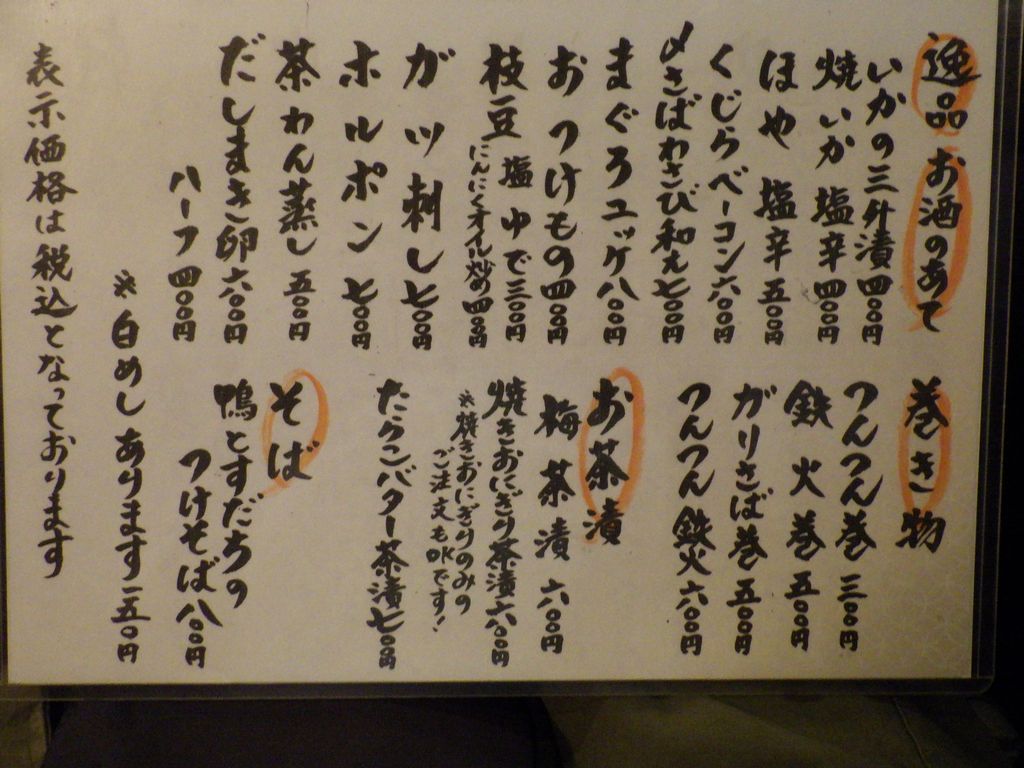 逸品 お酒のあて
いかの三升漬 四〇〇円
焼いか塩辛 四〇〇円
ほや塩辛 五〇〇円
くじらベーコン 六〇〇円
〆さばわさび和え 七〇〇円
まぐろユッケ 八〇〇円
おつけもの 四〇〇円
枝豆 塩ゆで 三〇〇円
にんにくオイル炒め 四〇〇円
ガツ刺し 七〇〇円
ホルポン 七〇〇円
茶わん蒸し 五〇〇円
だしまき卵 六〇〇円
ハーフ 四〇〇円
巻き物
つんつん巻 三〇〇円
鉄火巻 五〇〇円
がりさば巻 五〇〇円
つんつん鉄火 六〇〇円
お茶漬
梅茶漬 六〇〇円
焼きおにぎり茶漬 六〇〇円
※焼きおにぎりのみの
ご注文もOKです!
たくンバター茶漬 七〇〇円
そば
鴨とすだちの
つけそば 八〇〇円
※白めしあります 一五〇円
表示価格は税込となっております